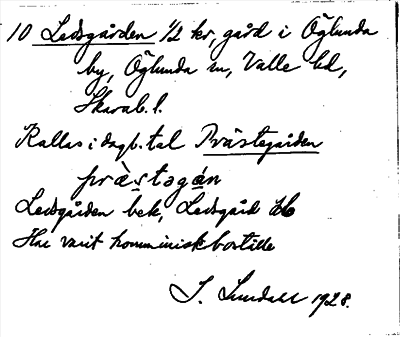 10 Ledsgården 1/2 kr, gård i Öglunda
by, Öglunda sn, Valle hd,
Skarab. l.
Kallas i dagl. tal Prästegården
præ̀stəgán
Ledsgården bek, Ledsgård
Har varit komministkbostille
I. Lundahl 1928.